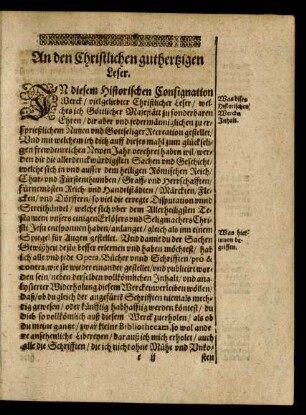 An den Christlichen guthertzigen
Leser.
IN diesem Historischen Consignation
Werck / vielgeliebter Christlicher Leser / wel-
ches ich Göttlicher Majestät zu sonderbaren
Ehren / dir aber und jedermänniglichen zu er-
sprießlichem Nutzen und Gottseliger Recreation gestellet /
Und mit welchem ich dich auff dieses mahl zum glückseli-
gen frewdenreichen Newen Jahr verehret haben wil / wer-
den dir die allerdenckwürdigsten Sachen und Geschicht /
welche sich in und ausser dem heiligen Römischen Reich /
Chur- und Fürstenthumben / Graff- und Herrschafften /
fürnembsten Reich- und Handelstädten / Märckten / Fle-
cken / und Dörffern / so viel die erregte Disputation unnd
Streithändel / welche sich uber dem Allerheiligsten Te-
stament unsers einigen Erlösers und Seligmachers Chri-
sti Jesu entsponnen haben / anlanget / gleich als inn einem
Spiegel für Augen gestellet. Und damit du der Sachen
Gewißheit desto besser erlernen und haben möchtest / hab
ich alle und jede Opera, Bücher unnd Schrifften / pro &
contra, wie sie wieder einander gestellet / und publicirt wor-
den sein / neben derselben vollkömlichen Inhalt / und ana-
lysierter Widerholung diesem Wercke einverleiben wöllen /
daß / ob du gleich der angeführten Schrifften niemals mech-
tig gewesen / oder künfftig habhafftig werden köntest / du
dich so vollkömlich auß diesem Werck zu erholen / als ob
du meine gantze / zwar kleine Bibliothecam, so wol ande-
re ansehenliche Libereyen / darauß ich mich erholet / auch
alle die Schrifften / die ich nicht ohne Mühe und Unko-
c ij
sten
Was dises
Historischen
Wercks
Inhalt.
Was hier-
innen be-
griffen.